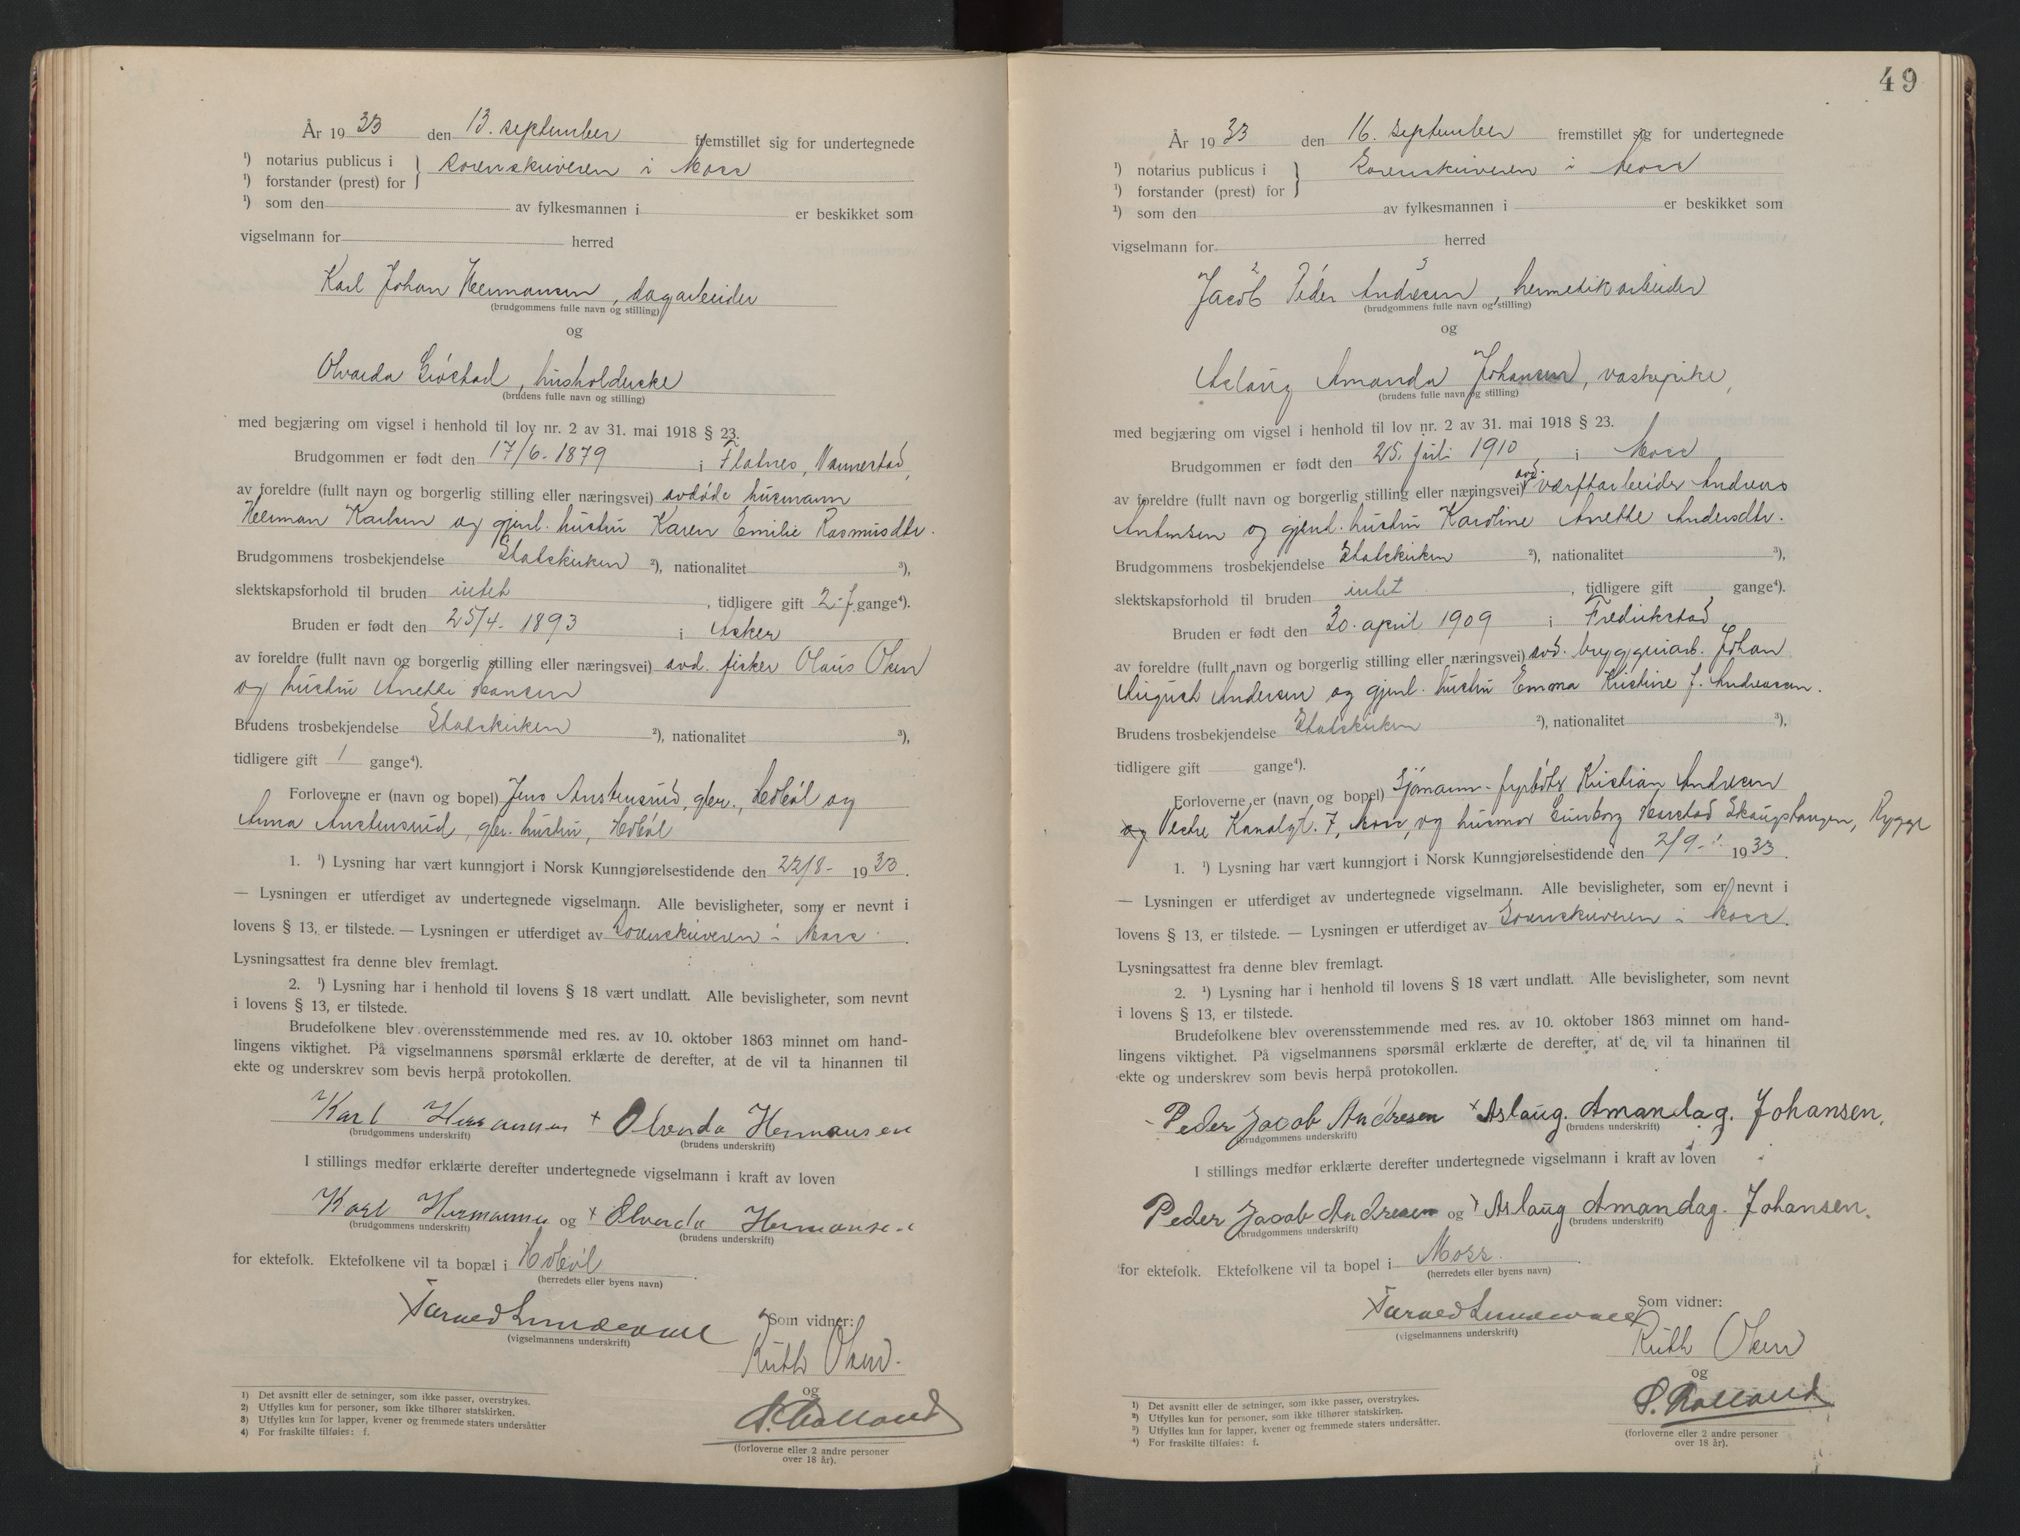 År 1933 den 13. september fremstillet sig for undertegnede
¹) notarius publicus i
¹) forstander (prest) for } sorenskriveren i Moss
¹) som den av fylkesmannen i er beskikket som
vigselmann for herred
Karl Johan Hermansen, dagarbeider
(brudgommens fulle navn og stilling)
og
Olvarda Grøstad, husholderske
(brudens fulle navn og stilling)
med begjæring om vigsel i henhold til lov nr. 2 av 31. mai 1918 § 23.
Brudgommen er født den 17/6-1879 i Flatnes, Vannestad,
av foreldre (fullt navn og borgerlig stilling eller næringsvei) avdøde husmann
Herman Karlsen og gjenl. hustru Karen Emilie Rasmusdtr.
Brudgommens trosbekjendelse Statskirken ²), nationalitet ³),
slektskapsforhold til bruden intet, tidligere gift 2-f. gange⁴).
Bruden er født den 25/4-1893 i Asker
av foreldre (fullt navn og borgerlig stilling eller næringsvei) avd. fisker Olaus Olsen
og hustru Anette Hansen
Brudens trosbekjendelse Statskirken ²), nationalitet ³),
tidligere gift 1 gange⁴).
Forloverne er (navn og bopel) Jens Anstensrud, gbr., Hobøl og
Anna Anstensrud, gbr. hustru, Hobøl
1. ¹) Lysning har vært kunngjort i Norsk Kunngjørelsestidende den 22/8- 1933.
— Lysningen er utferdiget av undertegnede vigselmann. Alle bevisligheter, som er nevnt i
lovens § 13, er tilstede. — Lysningen er utferdiget av Sorenskriveren i Moss.
Lysningsattest fra denne blev fremlagt.
2. ¹) Lysning har i henhold til lovens § 18 vært undlatt. Alle bevisligheter, som nevnt
i lovens § 13, er tilstede.
Brudefolkene blev overensstemmende med res. av 10. oktober 1863 minnet om hand-
lingens viktighet. På vigselmannens spørsmål erklærte de derefter, at de vil ta hinannen til
ekte og underskrev som bevis herpå protokollen.
Karl Hermansen + Olvarda Hermansen
(brudgommens underskrift) (brudens underskrift)
I stillings medfør erklærte derefter undertegnede vigselmann i kraft av loven
Karl Hermansen og + Olvarda Hermansen
(brudgommens underskrift) (brudens underskrift)
for ektefolk. Ektefolkene vil ta bopæl i Hobøl
(herredets eller byens navn)
(vigselmannens underskrift)
Som vidner:
Ruth Olsen.
og
(forloverne eller 2 andre personer
over 18 år).
1) Det avsnitt eller de setninger, som ikke passer, overstrykes.
2) Utfylles kun for personer, som ikke tilhører statskirken.
3) Utfylles kun for lapper, kvener og fremmede staters undersåtter
4) For fraskilte tilføies: f.
49
År 1933 den 16. september fremstillet sig for undertegnede
¹) notarius publicus i
¹) forstander (prest) for } Sorenskriveren i Moss
¹) som den av fylkesmannen i er beskikket som
vigselmann for herred
2 3
Jacob Peder Andresen, hermetikarbeider
(brudgommens fulle navn og stilling)
og
Aslaug Amanda Johansen, vaskepike,
(brudens fulle navn og stilling)
med begjæring om vigsel i henhold til lov nr. 2 av 31. mai 1918 § 23.
Brudgommen er født den 25. juli 1910, i Moss
av foreldre (fullt navn og borgerlig stilling eller næringsvei) avd. værftarbeider Andreas
Antonsen og gjenl. hustru Karoline Anette Andersdtr.
Brudgommens trosbekjendelse Statskirken ²), nationalitet ³),
slektskapsforhold til bruden intet, tidligere gift gange⁴).
Bruden er født den 30. april 1909 i Fredrikstad,
av foreldre (fullt navn og borgerlig stilling eller næringsvei) avd. bryggeriarb. Johan
August Andersen og gjenl. hustru Emma Kristine f. Andreassen.
Brudens trosbekjendelse Statskirken ²), nationalitet ³),
tidligere gift gange⁴).
Forloverne er (navn og bopel) Sjømann-fyrbøter Kristian Andresen
og Vestre Kanalgt. 7, Moss, og husmor Gunborg Harstad Skaugstangen, Rygge
1. ¹) Lysning har vært kunngjort i Norsk Kunngjørelsestidende den 2/9- 1933.
— Lysningen er utferdiget av undertegnede vigselmann. Alle bevisligheter, som er nevnt i
lovens § 13, er tilstede. — Lysningen er utferdiget av Sorenskriveren i Moss.
Lysningsattest fra denne blev fremlagt.
2. ¹) Lysning har i henhold til lovens § 18 vært undlatt. Alle bevisligheter, som nevnt
i lovens § 13, er tilstede.
Brudefolkene blev overensstemmende med res. av 10. oktober 1863 minnet om hand-
lingens viktighet. På vigselmannens spørsmål erklærte de derefter, at de vil ta hinannen til
ekte og underskrev som bevis herpå protokollen.
Peder Jacob Andresen + Aslaug. Amandag. Johansen.
(brudgommens underskrift) (brudens underskrift)
I stillings medfør erklærte derefter undertegnede vigselmann i kraft av loven
Peder Jacob Andresen og + Aslaug Amandag. Johansen.
(brudgommens underskrift) (brudens underskrift)
for ektefolk. Ektefolkene vil ta bopel i Moss.
(herredets eller byens navn)
(vigselmannens underskrift)
Som vidner:
Ruth Olsen
og
(forloverne eller 2 andre personer
over 18 år).
¹) Det avsnitt eller de setninger, som ikke passer, overstrykes.
²) Utfylles kun for personer, som ikke tilhører statskirken.
³) Utfylles kun for lapper, kvener og fremmede staters undersåtter.
⁴) For fraskilte tilføies: f.